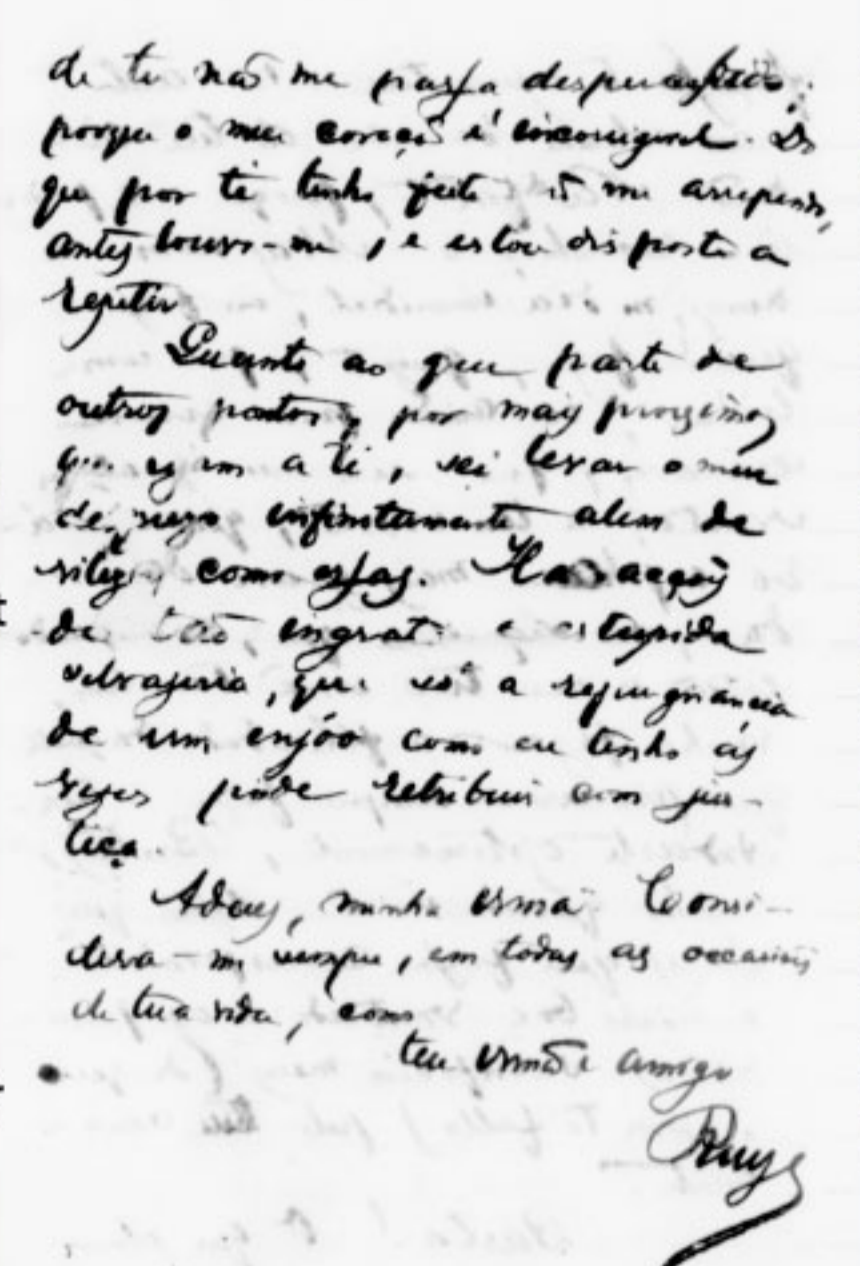 de ti não me passa despercebido,
porque o meu coração é incorrigivel. Do
que por ti tenho feito ñ me arrependo,
antes louvo-me, e estou disposto a
repetir.
Quanto ao que parte de
outros pontos, por mais proximos
que sejam a ti, sei levar o meu
desprezo infinitamente alem de
vilezas como essas. Ha acções
de tão ingrata e estupida
selvajeria, que só a repugnancia
de um enjôo como eu tenho ás
vezes póde retribuir com jus-
tiça.
Adeus, minha irmã. Consi-
dera-me sempre, em todas as occasiões
de tua vida, como
teu irmão e amigo
Ruy